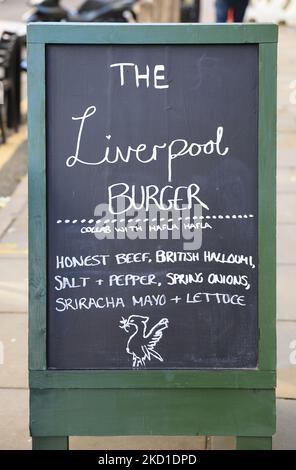 THE
Liverpool
BURGER
COLLAB WITH HAFLA HAFLA
HONEST BEEF, BRITISH HALLOUMI,
SALT + PEPPER, SPRING ONIONS,
SRIRACHA MAYO + LETTUCE
alamy
Image ID: 2K1D1PD
www.alamy.com